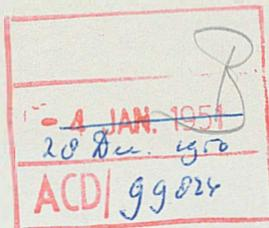 - 4 JAN. 1951
28 Dec. 1950
ACD/ 99824